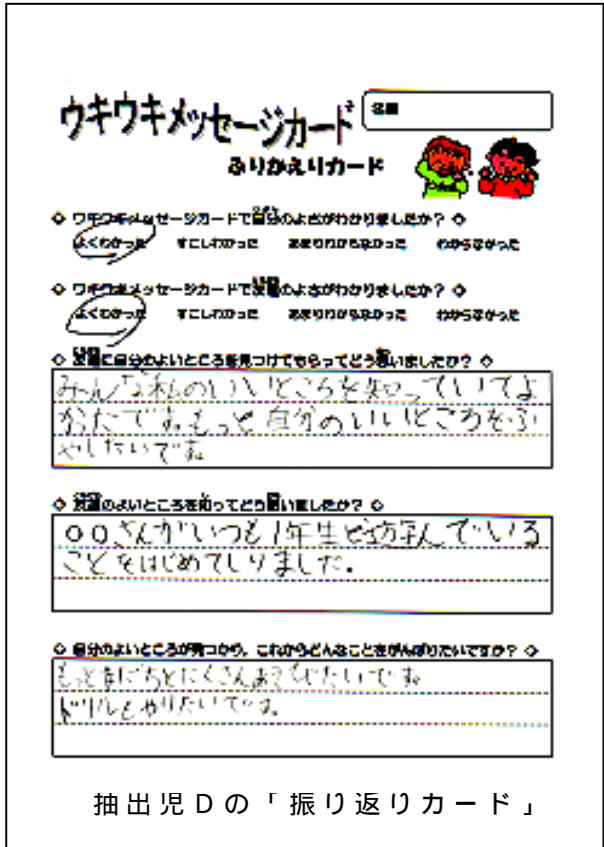 ウキウキメッセージカード
名前
ふりかえりカード
◇ ウキウキメッセージカードで自分のよさがわかりましたか? ◇
よくわかった すこしわかった あまりわからなかった わからなかった
◇ ウキウキメッセージカードで友達のよさがわかりましたか? ◇
よくわかった すこしわかった あまりわからなかった わからなかった
◇ 友達に自分のよいところを見つけてもらってどう思いましたか? ◇
みんな私のいいところを知っていてよ
かたです。もっと自分のいいところをふ
やしたいです。
◇ 友達のよいところを知ってどう思いましたか? ◇
○○さんがいつも1年生と遊んでいる
ことをはじめてしりました.
◇ 自分のよいところが見つかり、これからどんなことをがんばりたいですか? ◇
もっと たいです。
ドリルもやりたいです。
抽出児Dの「振り返りカード」